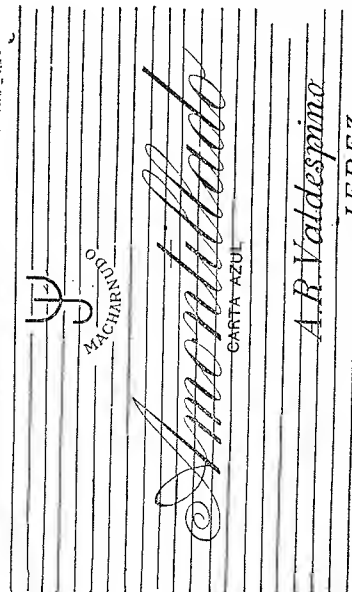 MACHARNUDO
Amontillado
CARTA AZUL
A.R. Valdespino
JEREZ